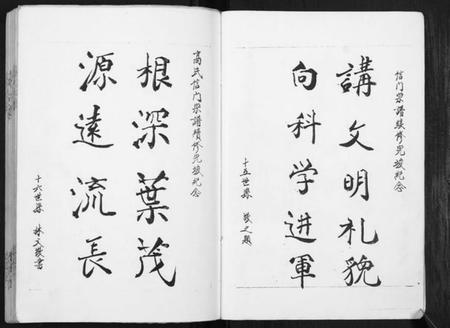 信门宗谱续修完竣纪念
講文明礼貌
向科学进軍
十五世孫 敬之题
高氏信门宗谱續修完竣纪念
根深葉茂
源遠流長
十六世孫 林文敬書